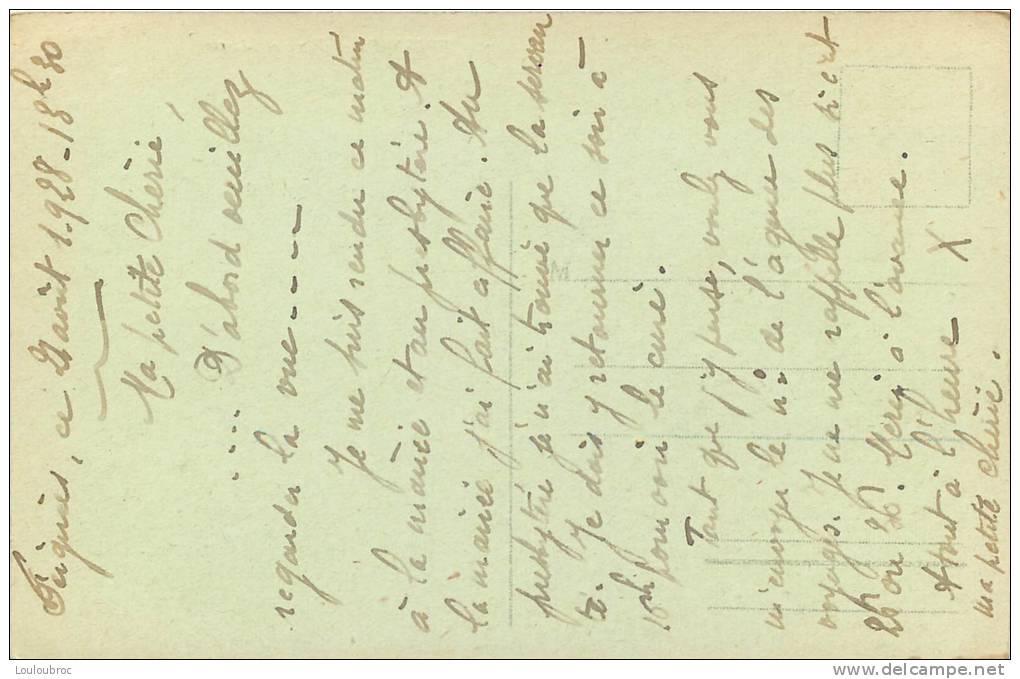 Ferques, ce 2 août 1928 - 13h30
Ma petite Chérie,
D'abord veuillez
regarder la vue - - - -
Je me suis rendu ce matin
à la mairie et au presbytère. A
la mairie j'ai fait affaire. Au
presbytère je n'ai trouvé que la servan
te. Je dois y retourner ce soir à
pour voir le curé.
Tant que j'y pense, voulez vous
m'envoyer le n° de l'agence des
voyages. Je ne me rappelle plus si c'est
25 ou 26. Merci à l'avance.
A tout à l'heure X
ma petite chérie.
M
Louloubroc
delcampe.net